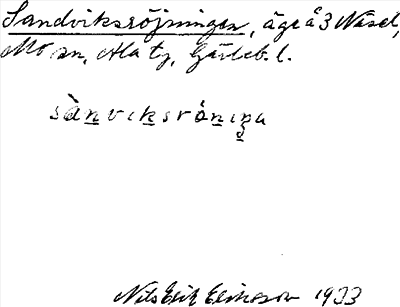 Sandviksröjningen, äge å 3 Näset,
Mo sn, Ala tg, Gävleb. l.
sànviksrö̀niŋa
Nils Erik Eriksson 1933